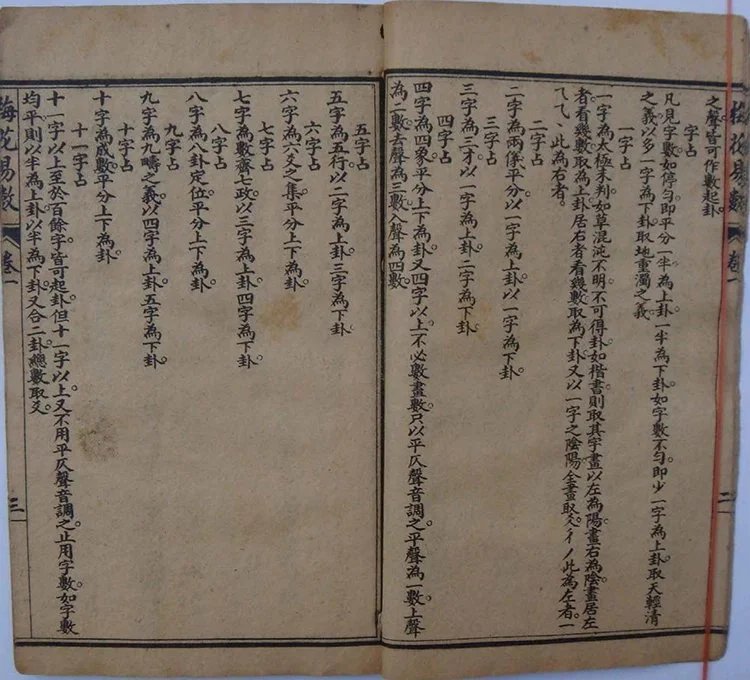 梅花易數 卷一 二
之聲皆可作數起卦。
字占
凡見字數如停勻。即平分一半為上卦。一半為下卦。如字數不勻。即少一字為上卦。取天輕清
之義。以多一字為下卦。取地重濁之義。
一字占
一字為太極未判。如草混沌不明。不可得卦。如楷書則取其字畫。以左為陽畫。右為陰畫。居左
者看幾數。取為上卦。居右者看幾數。取為下卦。又以一字之陰陽全畫取爻。彳丿此為左者。一
此為右者。
二字占
二字為兩儀。平分。以一字為上卦。以一字為下卦。
三字占
三字為三才。以一字為上卦。二字為下卦。
四字占
四字為四象。平分上下為卦。又四字以上。不必數畫數。只以平仄聲音調之。平聲為一數。上聲
為二數。去聲為三數。入聲為四數。
五字占
五字為五行。以二字為上卦。三字為下卦。
六字占
六字為六爻之集。平分上下為卦。
七字占
七字為數齊七政。以三字為上卦。四字為下卦。
八字占
八字為八卦定位。平分上下為卦。
九字占
九字為九疇之義。以四字為上卦。五字為下卦。
十字占
十字為成數。平分上下為卦。
十一字占
十一字以上至於百餘字。皆可起卦。但十一字以上。又不用平仄聲音調之。止用字數。如字數
均平。則以半為上卦。以半為下卦。又合二卦總數取爻。
梅花易數 卷一 三